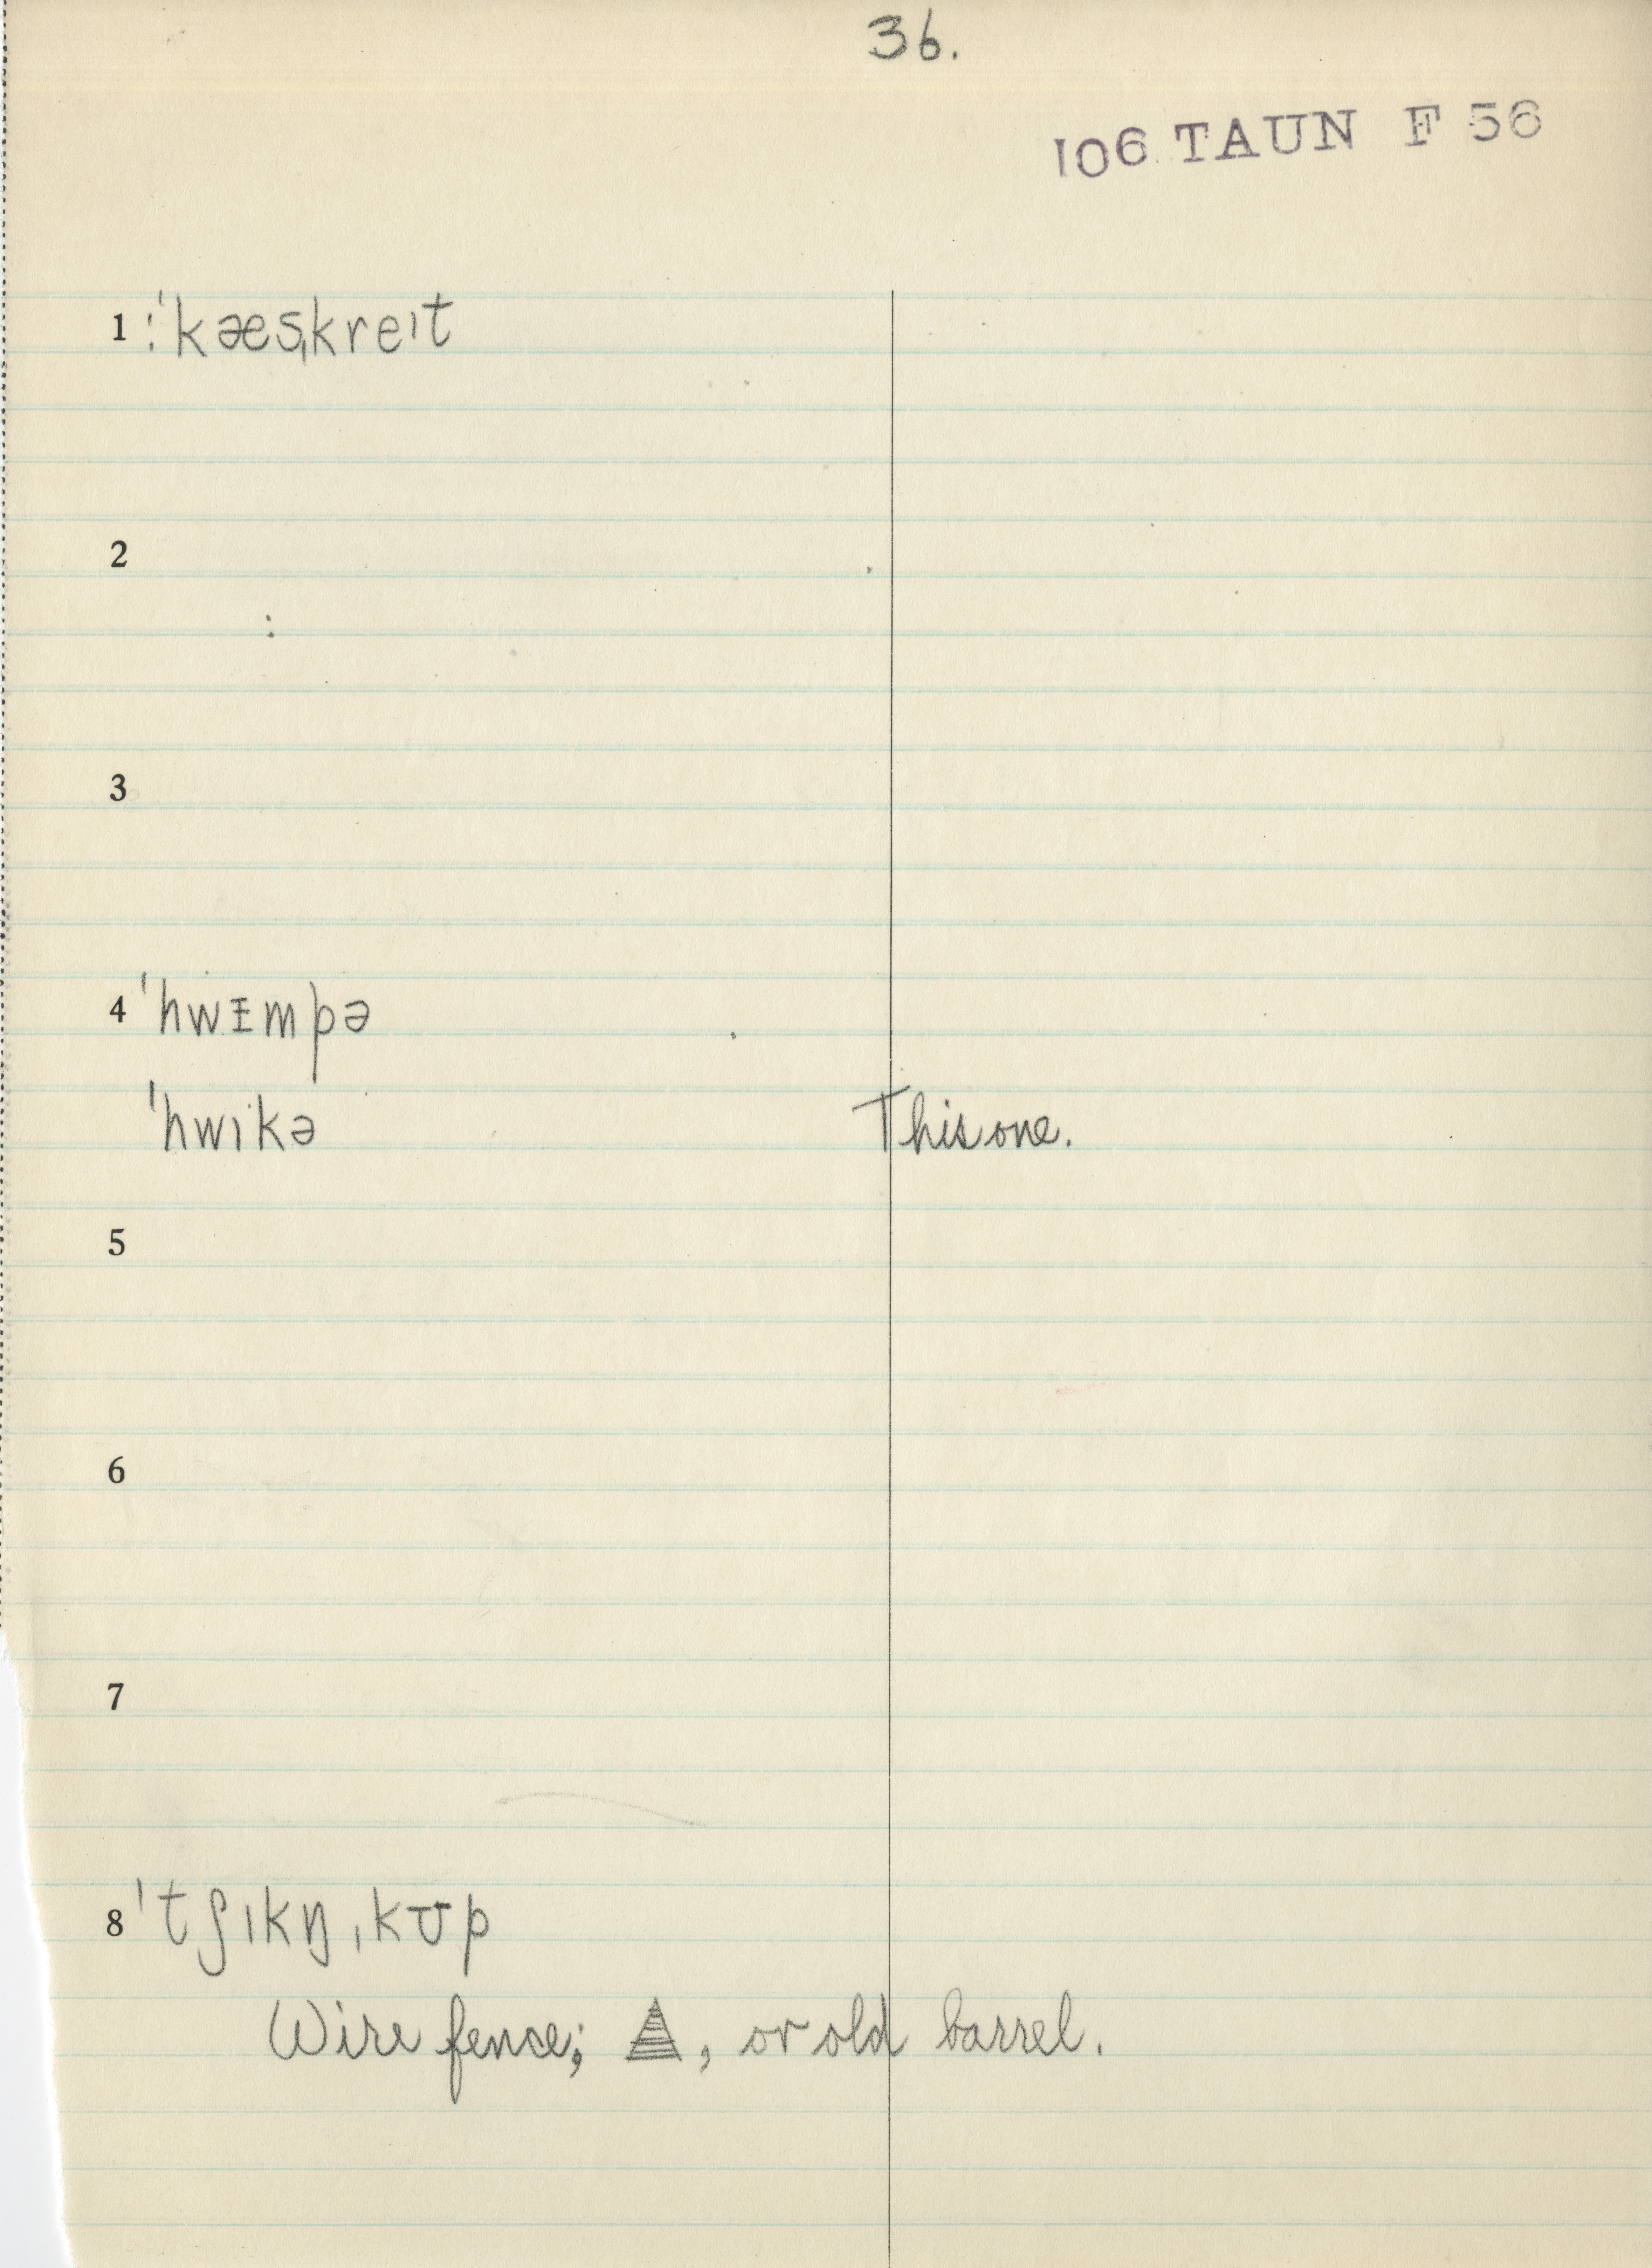 36.
106 TAUN F 56
1 :ˈkæsˌkreɪt
2
3
4 ˈhwɪmpə
ˈhwɪkə This one.
5
6
7
8 ˈtʃɪkŋ̩ ˌkʊp
Wire fence; , or old barrel.